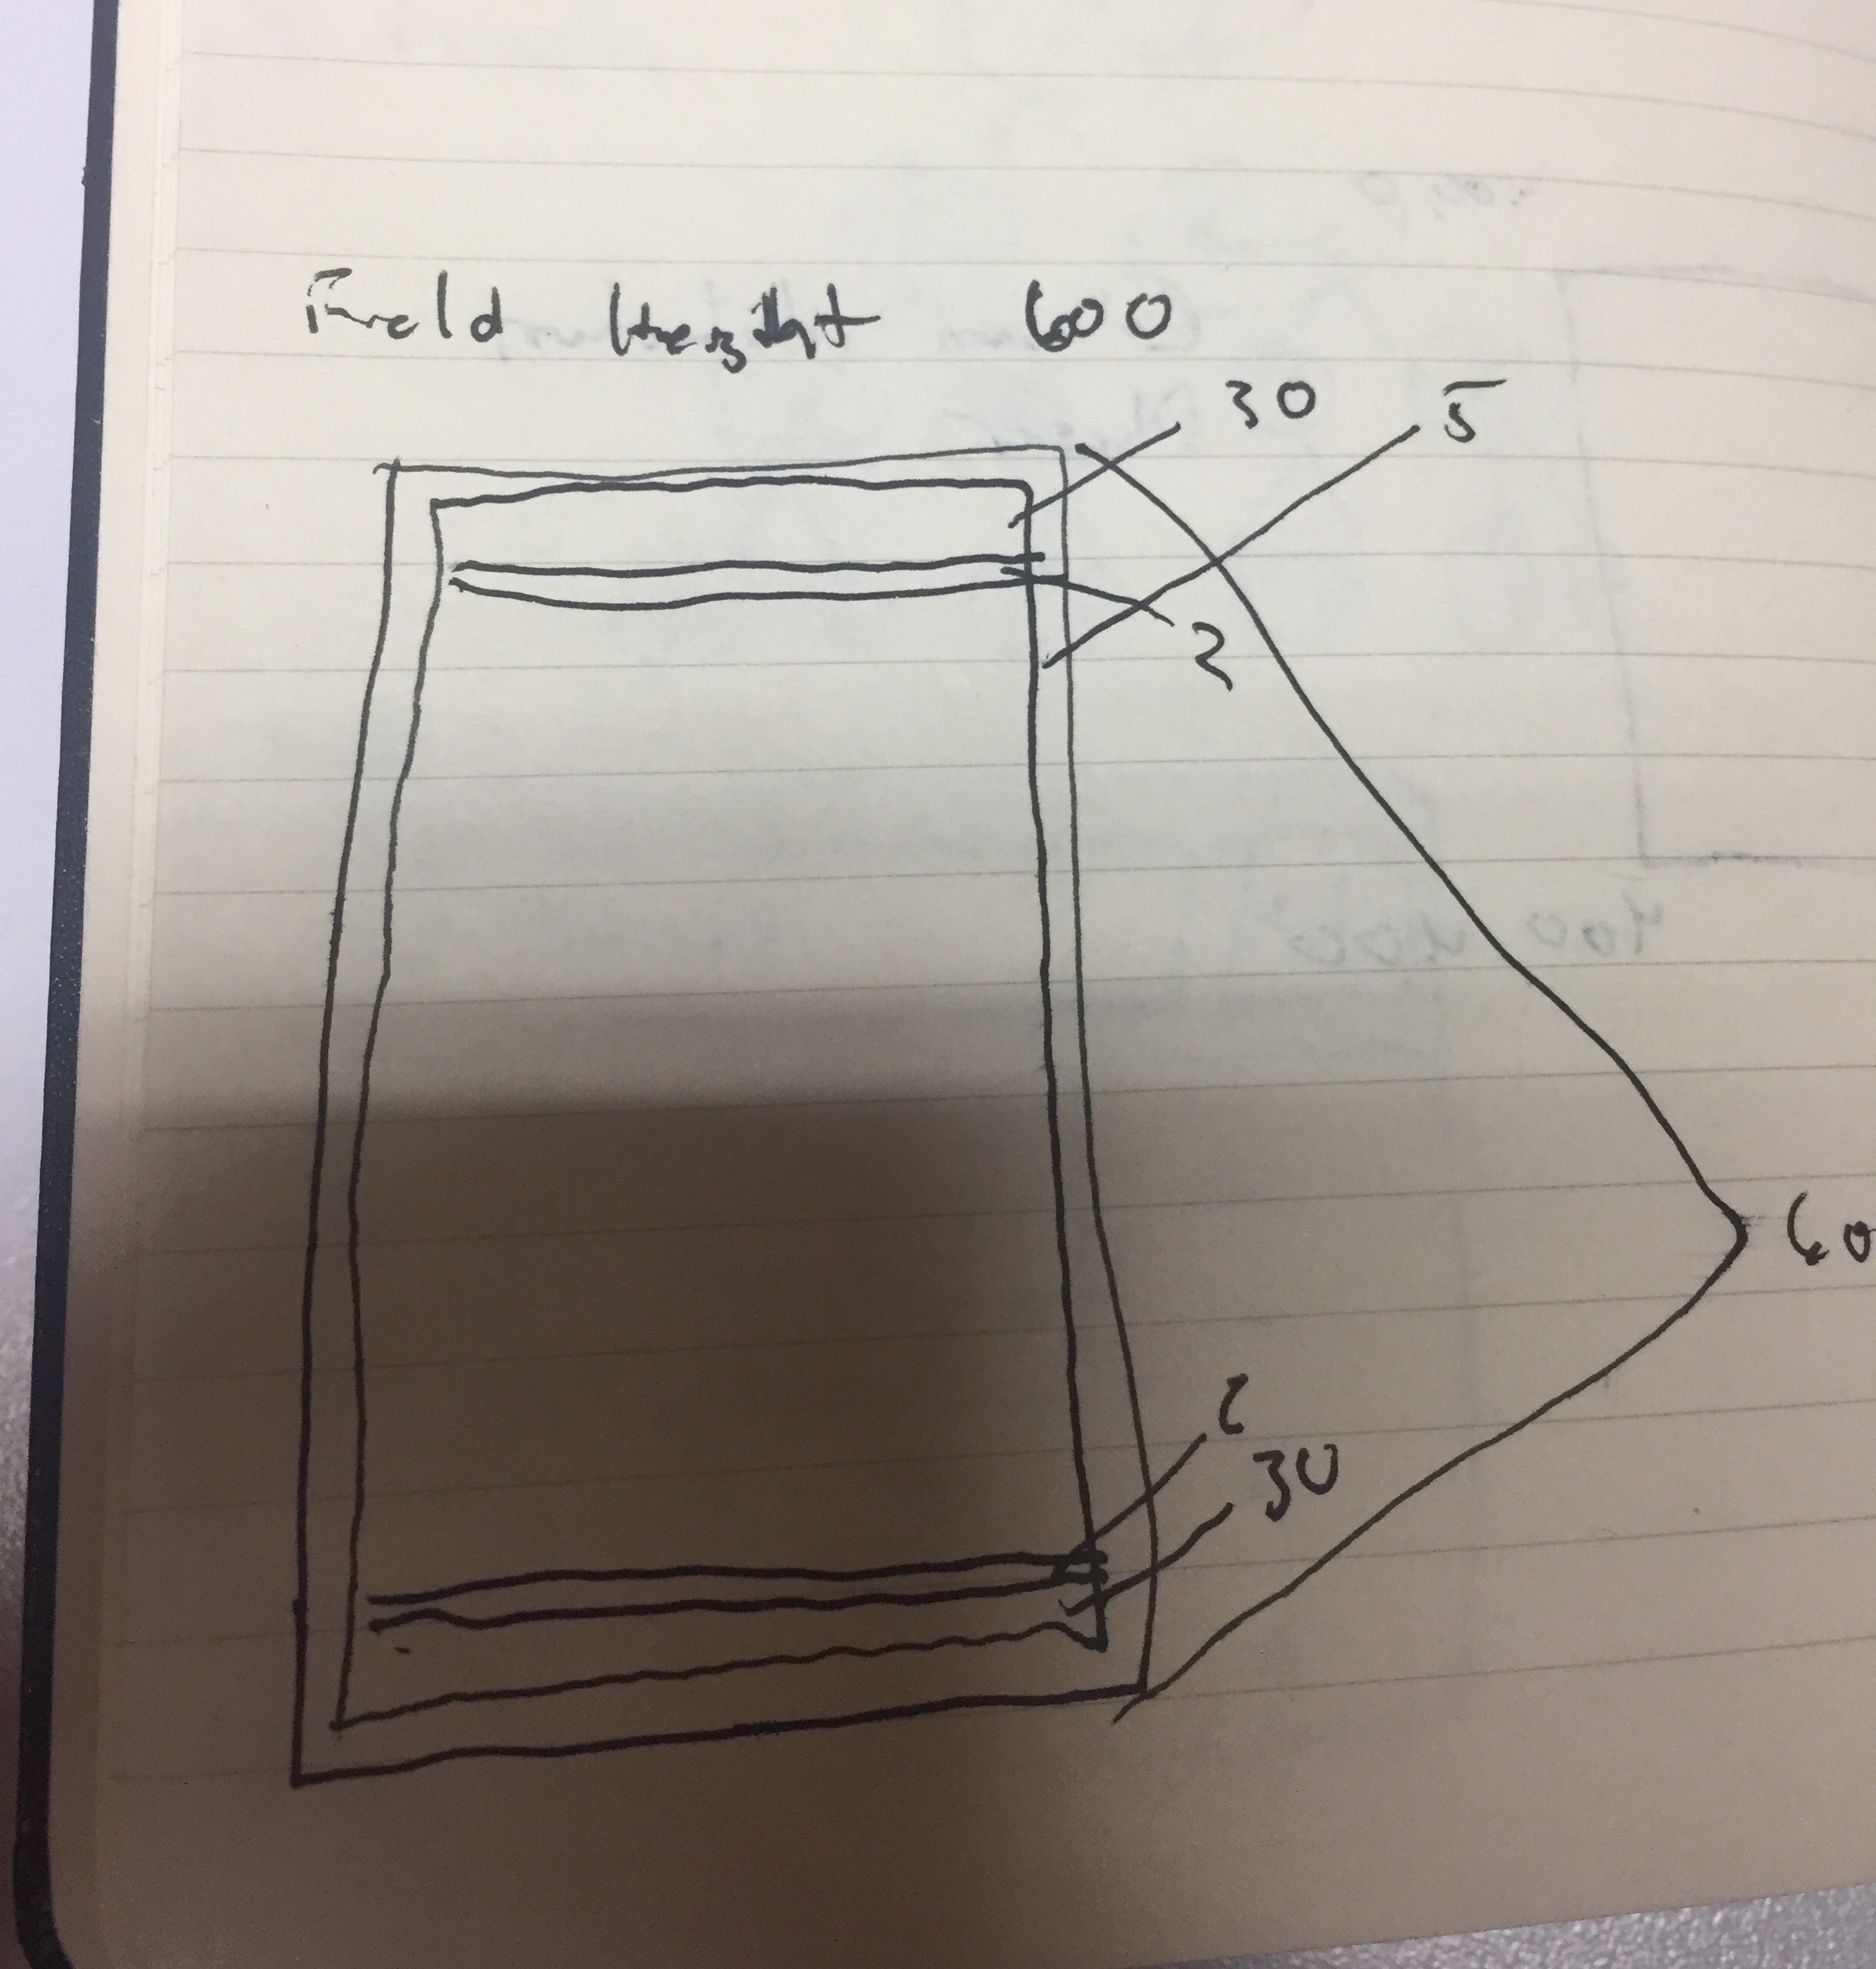 Field Height 600
30
5
2
2
30
60